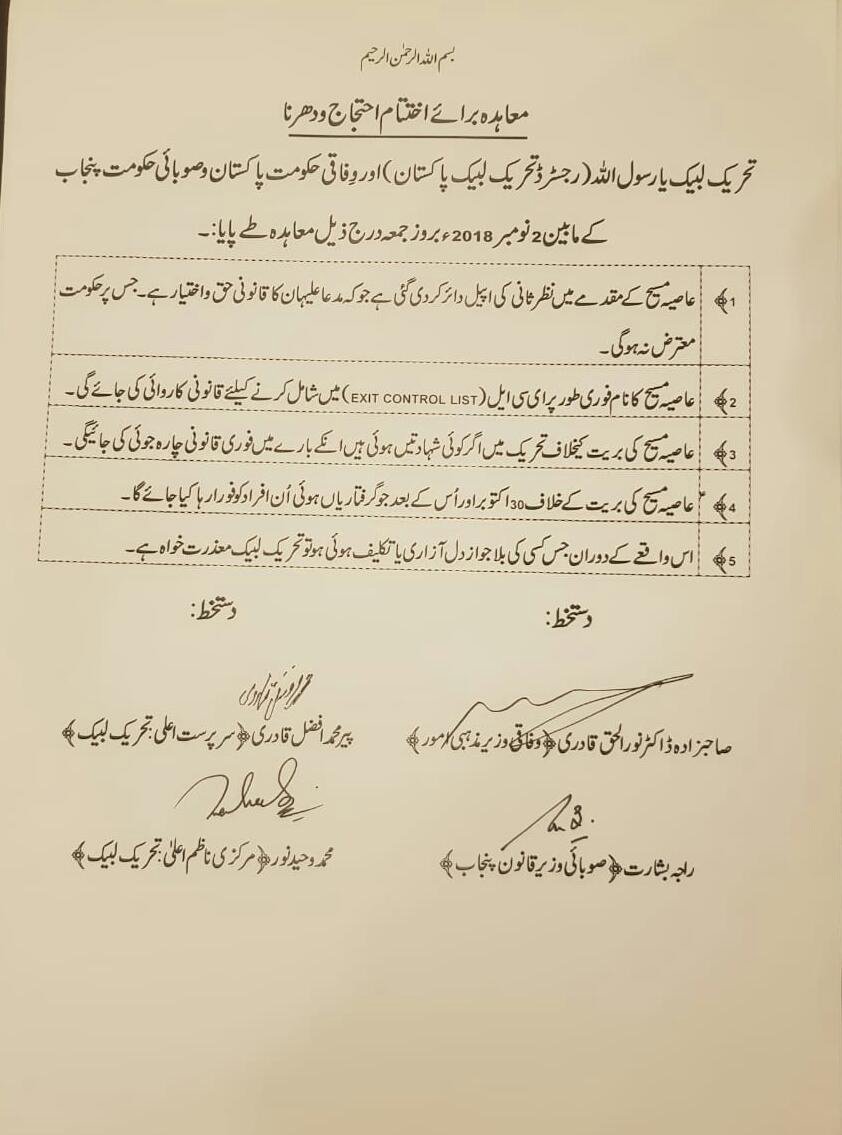 بسم اللہ الرحمٰن الرحیم
معاہدہ برائے اختتام احتجاج ودھرنا
تحریک لبیک یارسول اللہ (رجسٹرڈ تحریک لبیک پاکستان) اور وفاقی حکومت پاکستان وصوبائی حکومت پنجاب
کے مابین 2 نومبر 2018ء بروز جمعہ درج ذیل معاہدہ طے پایا:۔
﴿1 عاصیہ مسیح کے مقدمے میں نظرثانی کی اپیل دائر کردی گئی ہے جو کہ مدعا علیہان کا قانونی حق واختیار ہے۔ جس پر حکومت
معترض نہ ہوگی۔
﴿2 عاصیہ مسیح کا نام فوری طور پر ای سی ایل (EXIT CONTROL LIST) میں شامل کرنے کیلئے قانونی کاروائی کی جائے گی۔
﴿3 عاصیہ مسیح کی بریت کیخلاف تحریک میں اگر کوئی شہادتیں ہوئی ہیں انکے بارے میں فوری قانونی چارہ جوئی کی جائیگی۔
﴿4 عاصیہ مسیح کی بریت کے خلاف 30 اکتوبر اور اُس کے بعد جو گرفتاریاں ہوئی اُن افراد کو فورا رہا کیا جائے گا۔
﴿5 اس واقعے کے دوران جس کسی کی بلا جواز دل آزاری یا تکلیف ہوئی ہو تو تحریک لبیک معذرت خواہ ہے۔
دستخط: دستخط:
صاحبزادہ ڈاکٹر نورالحق قادری ﴿وفاقی وزیر مذہبی امور﴾ پیر محمد افضل قادری ﴿سرپرست اعلی: تحریک لبیک﴾
راجہ بشارت ﴿صوبائی وزیر قانون پنجاب﴾ محمد وحید نور ﴿مرکزی ناظم اعلیٰ: تحریک لبیک﴾